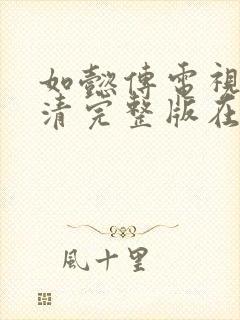 如懿傳電視
清完整版在
風十里